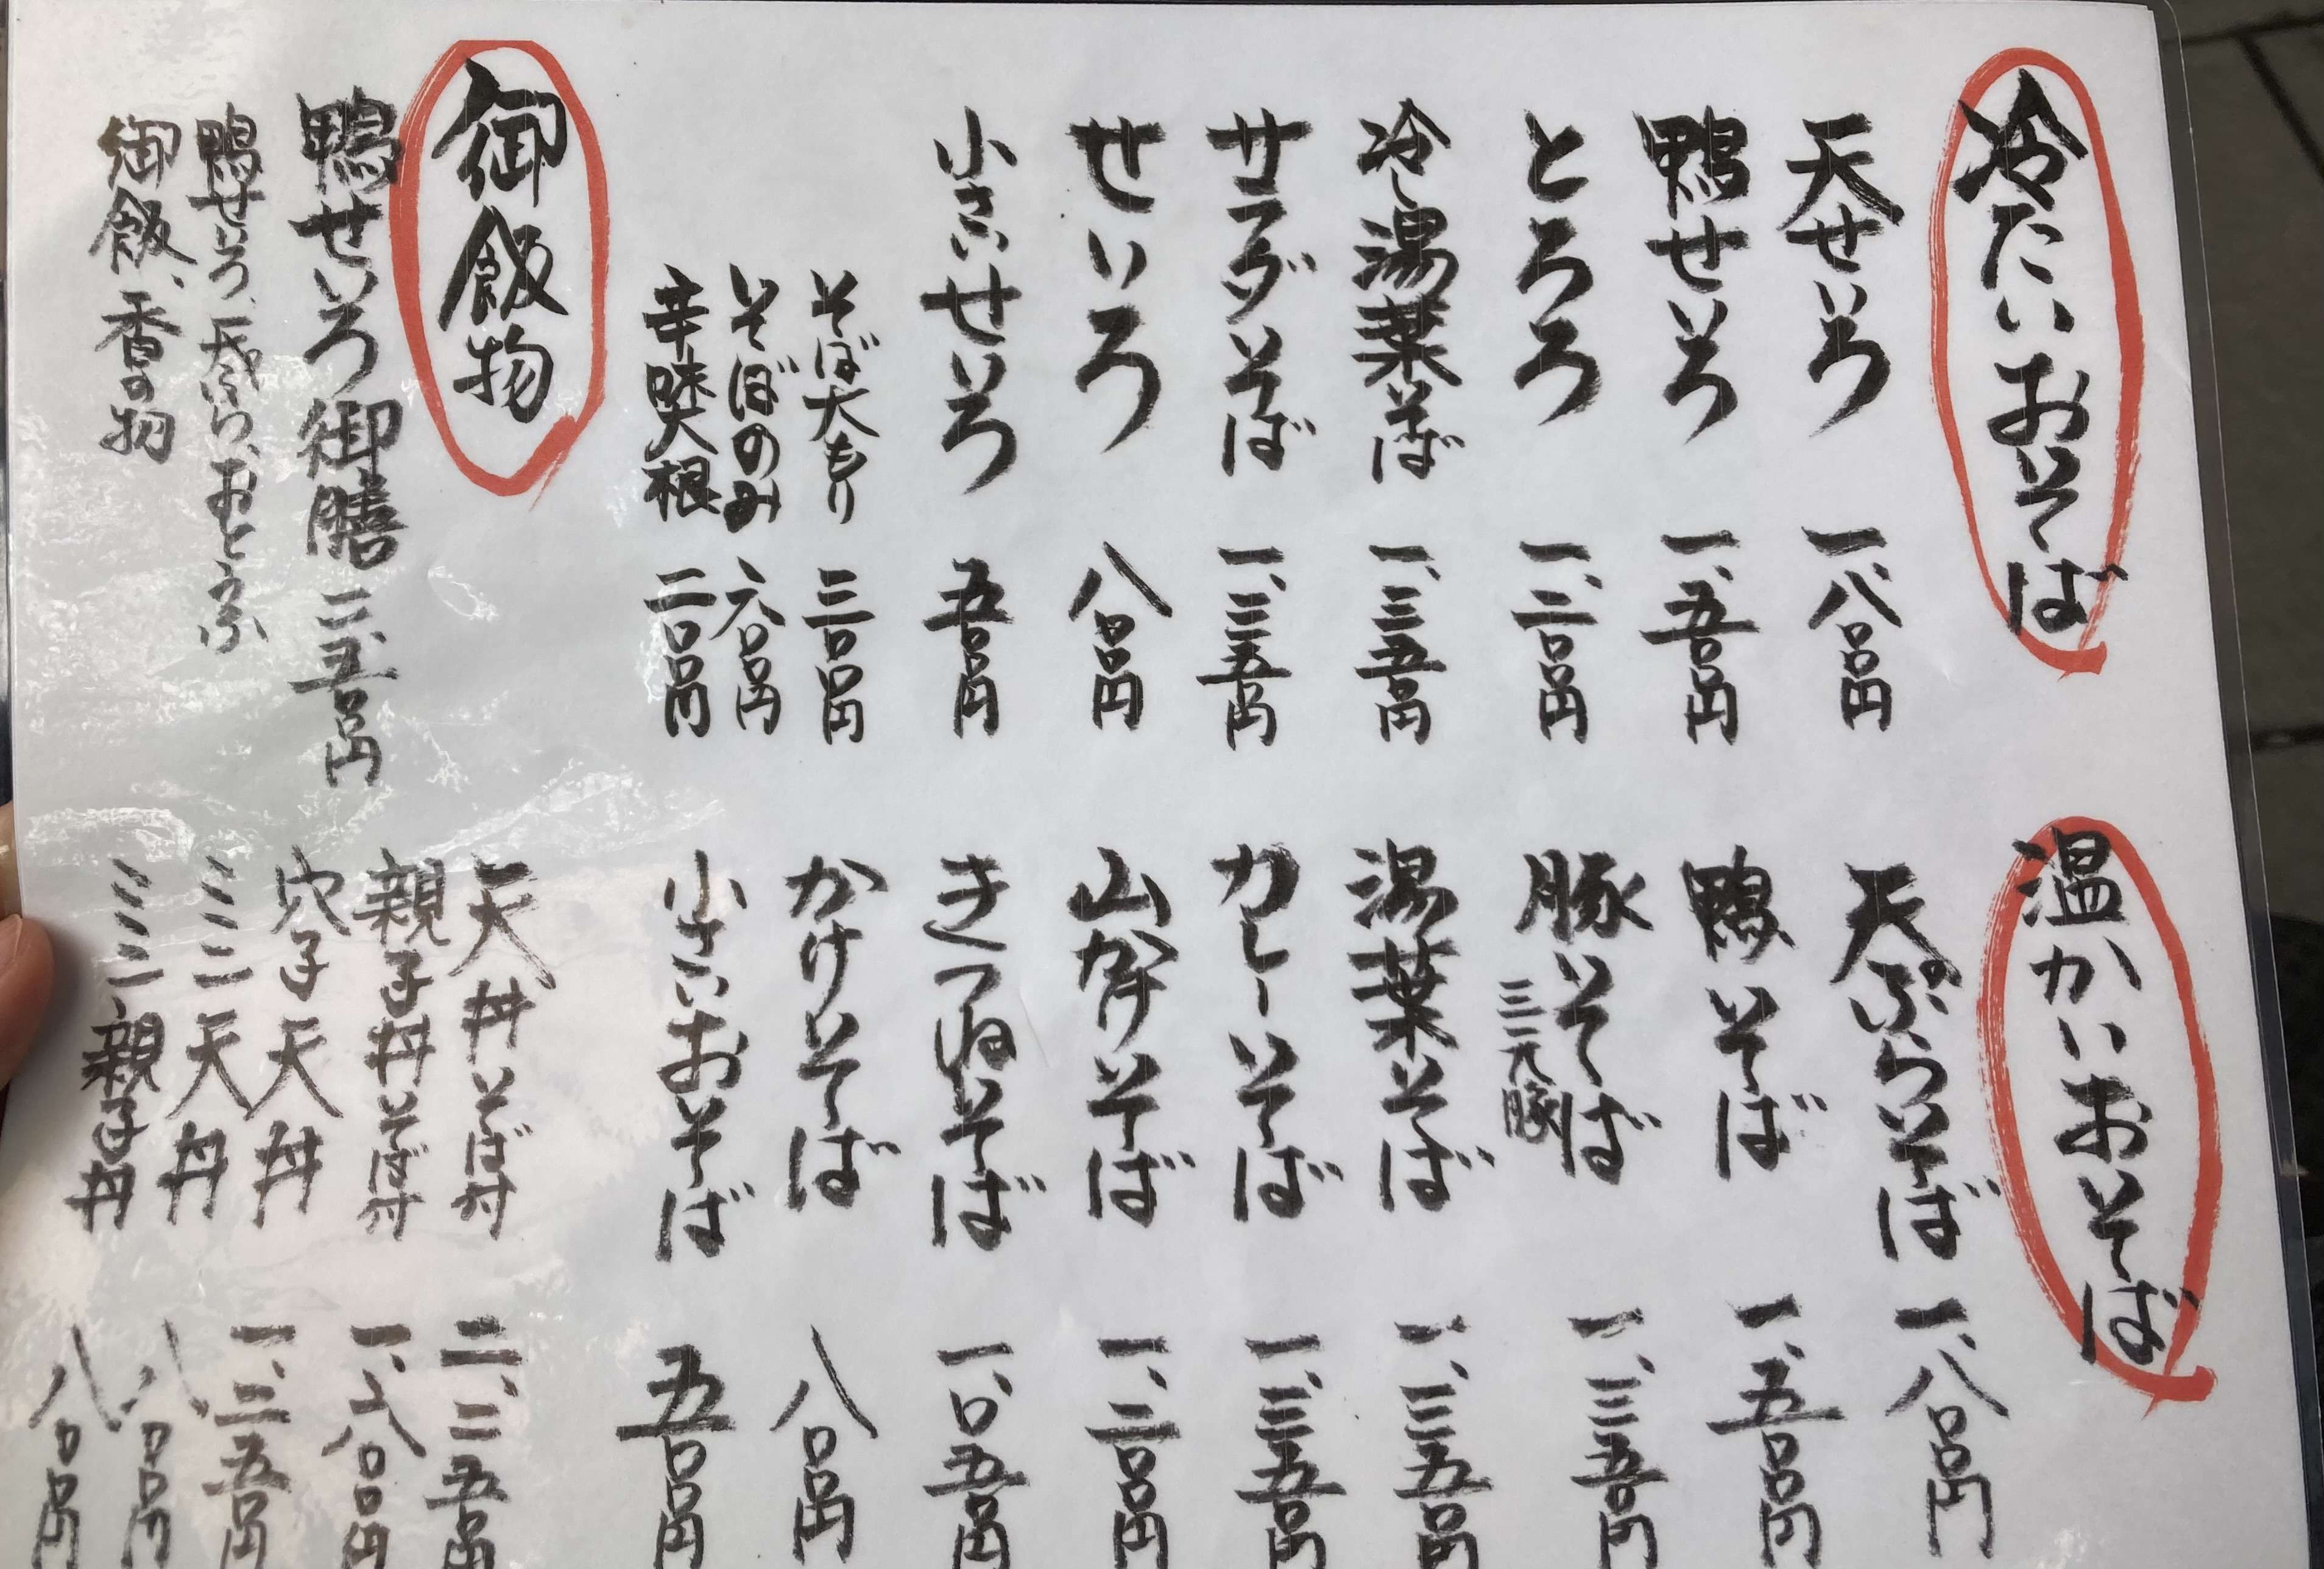 冷たいおそば
天せいろ 一、八〇〇円
鴨せいろ 一、五〇〇円
とろろ 一、二〇〇円
冷し湯葉そば 一、三五〇円
サラダそば 一、三五〇円
せいろ 八〇〇円
小さいせいろ 五〇〇円
そば大もり 三〇〇円
そばのみ 六〇〇円
辛味大根 二〇〇円
温かいおそば
天ぷらそば 一、八〇〇円
鴨そば 一、五〇〇円
豚そば 一、三五〇円
三元豚
湯葉そば 一、三五〇円
カレーそば 一、三五〇円
山かけそば 一、二〇〇円
きつねそば 一、〇五〇円
かけそば 八〇〇円
小さいおそば 五〇〇円
御飯物
鴨せいろ御膳
鴨せいろ、天ぷら、おとうふ
御飯、香の物
天丼そば付 二、二五〇円
親子丼そば付 一、六〇〇円
穴子天丼 一、三五〇円
ミニ天丼 八〇〇円
ミニ親子丼 八〇〇円